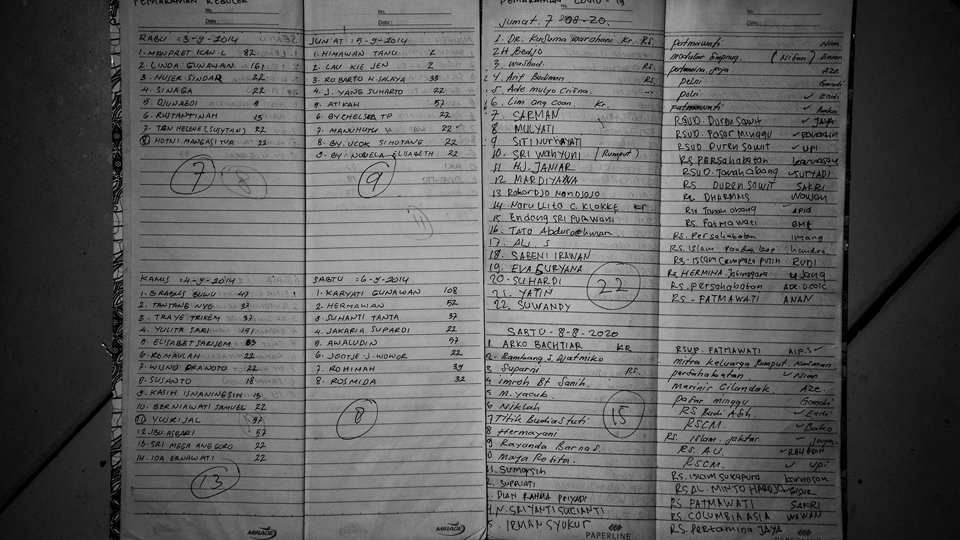 PEMAKAMAN REGULER
No.
Date :
RABU : 3-9-2014
1. MANPRET KAN. L 82
2. LINDA GUNAWAN 161
3. HUJER SINDAR 22
4. SINAGA 22
5. DJUNAEDI 9
6. RUSTANTINAH 13
7. TAN HELENE (SUJYTAN) 22
8 HOTNI MANGASITUA 22
7
KAMIS : 4-9-2014
1. BRABUS BUWU 47
2. TANTANE NYO 37
3. TRAYE TRIKEM 37
4. YULITA SARI 151
5. ELISABET SARIJEM 85
6. ROMAULAH 22
7. WISNU PRANOTO 22
8. SUSANTO 18
9. KASIH UNANINGSIH 13
10. BERNIAWATI SAMUEL 22
11 YUSRIJAL 37
12. IBU ASBARI 57
13. SRI MEGA ANGGORO 22
14. IDA ERNAWATI 22
13
MIRAGE
No.
Date :
JUM'AT : 5-9-2014
1. HIMAWAN TANU 2
2. LAU KIE JEN 2
3. ROBARTO H. JALAYA 33
4. J. YANG SUHARTO 22
5. ATIKAH 57
6. BY CHELSEA TP 22
7. MANUHUTU 22
8. BY. UCOK SIHOTANG 22
9. BY. NODELA ELISABETH 22
9
11
SABTU : 6-9-2014
1. KARYATI GUNAWAN 108
2. HERMAWAN 52
3. SUHANTI TANTA 37
4. JAKARIA SUPARDI 22
5. AWALUDIN 57
6. JOOTJE J. WOWOR 22
7. ROHIMAH 39
8. ROSMIDA 32
8
MIRAGE
PEMAKAMAN COVID - 19
No.
Date :
Jumat. 7 - 08-20.
1. DR. Kusuma warahani. Kr. Rs. Fatmawati Nian
2 H. Soedjo modular Simprug (Nifan) Erwan
3. Washadi RS. pertamina jaya. Aze
4. Arif Budiman RS. pelni Gandi
5 Ade mulyo Crisna. --- pelni ✓ Endi
6. Lim ong coan Kr. Fatmawati ✓ Boko
7. SARMAN RSUD. Duren sawit ✓ JAYA
8 MULYATI RSUD. Pasar Minggu
9 SITI NURHAYATI RSUD Duren Sawit ✓ UPI
10. SRI WAHYUNI (Rumput) RS Persahabatan
11 HJ. JANIAR RSUD. Tanah abang SURYADI
12 MARDIYANA RS DUREN SAWIT SAKRI
13 Rahardjo Nandjojo RS. DHARMAIS WAWAN
14. Narullita C. KLOKKE Kr RSU Tanah abang APID
15 Endang SRI PURWANI RS. Fatmawati
16. TATO Abdurochman RS. Persahabatan imang
17. ALI. S RS. islam Pondok kopi hendra
18. SABENI IRAWAN RS - ISLAM Cempaka putih RUDI
19. EVA SURYANA RS HERMINA Jatinegara
20. SUHARDI RS. persahabatan
21. YATIN RS - FATMAWATI ANAN
22. SUWANDY
22
SABTU - 8-8-2020
1. ARKO BACHTIAR KR RSUP. FATMAWATI
2. Bambang S. Djatmiko mitra keluarga
3 Suparni RS. persahabatan ✓ Nian
4 imroh Bt Sanih. Marinir Cilandak Aze.
5. M. Yacub. pasar minggu Gandi
6 Niklah RS Budi Asih. ✓ Endi
7 Titik Budiastuti RSCM. ✓ Boko
8 Hermayani RS. islam. jaktar Jaya.
9 Rayanda Barnas RS. AU.
10 Maya Rosita. RSCM. ✓ UPI
11. Sumarsih RS. ISLAM SUKAPURA
2. SUPRIATI RSAL. MINTO HARDJO
DIAN RAHMA PRIYADI RS FATMAWATI SAKRI
4 N. SRIYANTI SUCIANTI RS. COLUMBIA ASIA WAWAN
5. IRMAN SYUKUR RS. Pertamina JAYA
15
PAPERLINE